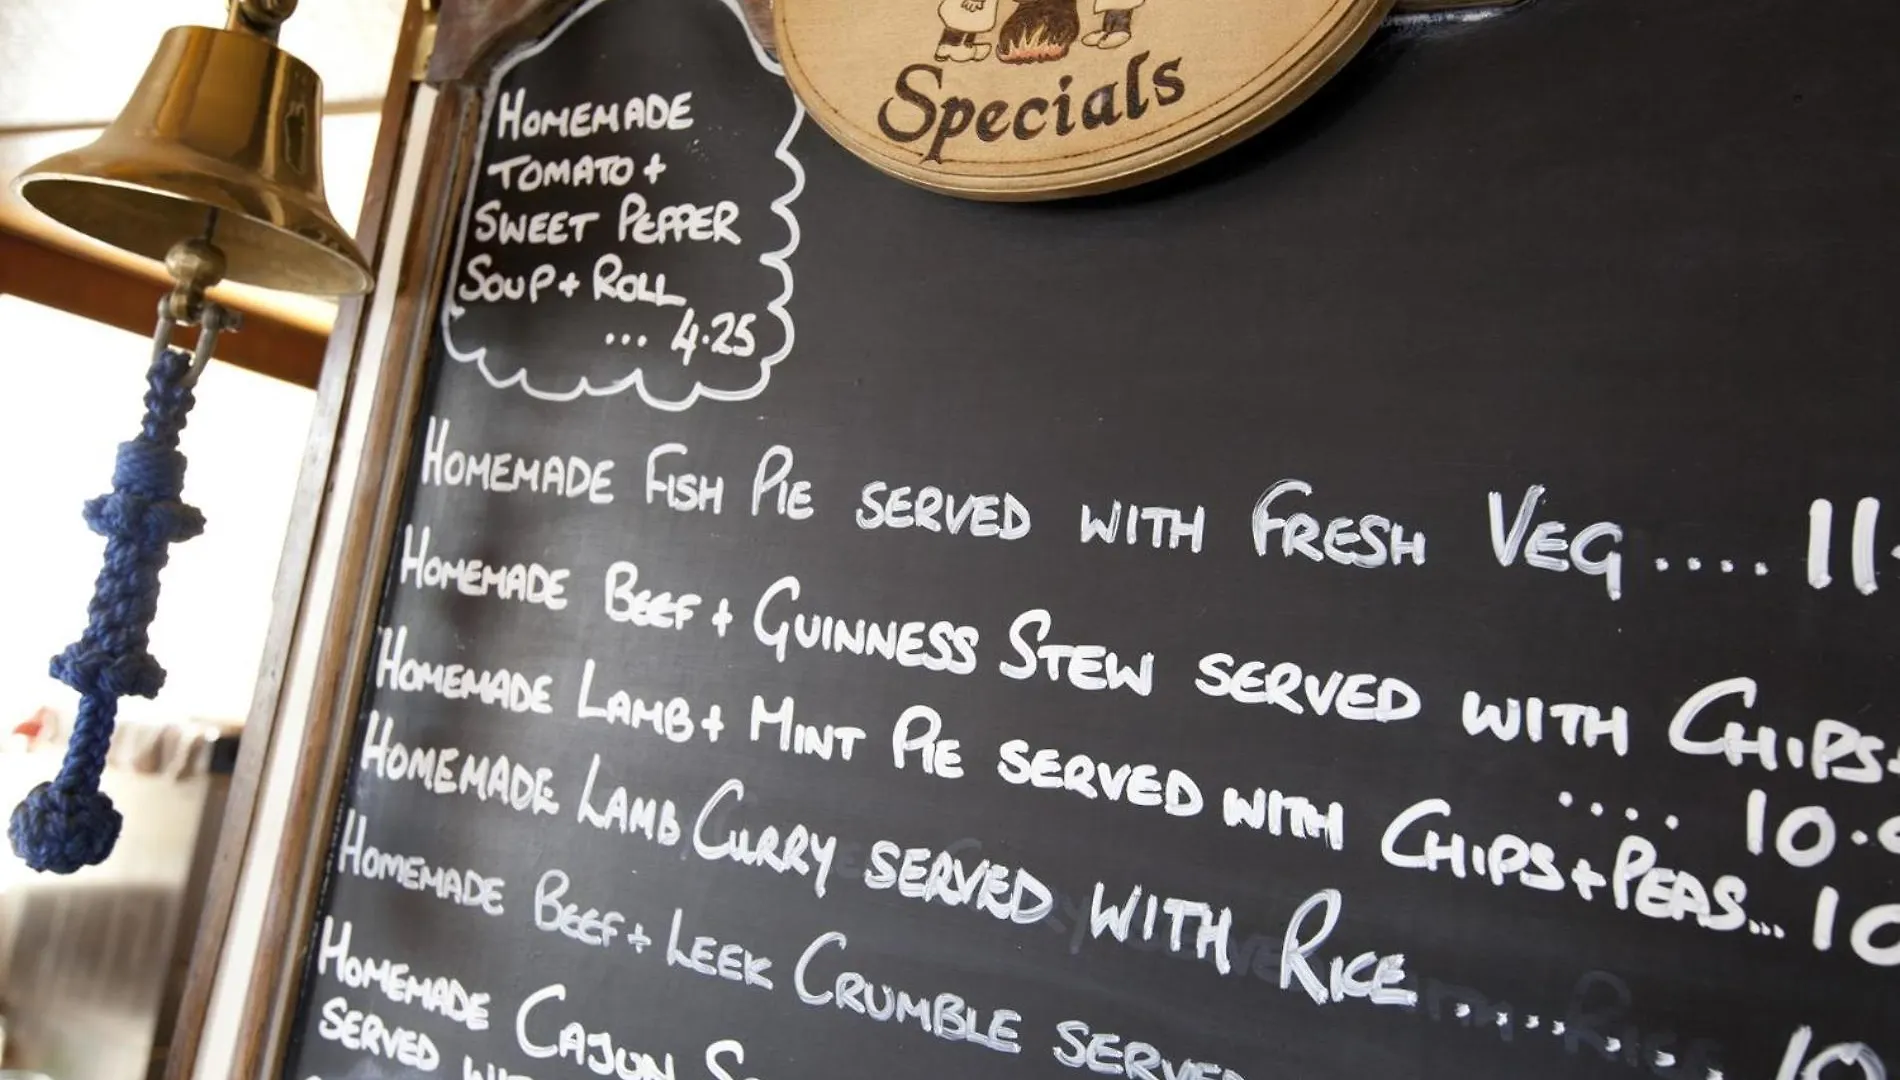 Specials
HOMEMADE
TOMATO +
SWEET PEPPER
SOUP + ROLL
... 4.25
HOMEMADE FISH PIE SERVED WITH FRESH VEG .... 11.
HOMEMADE BEEF + GUINNESS STEW SERVED WITH CHIPS+
.... 10.
HOMEMADE LAMB + MINT PIE SERVED WITH CHIPS + PEAS... 10
HOMEMADE LAMB CURRY SERVED WITH RICE ....... 10
HOMEMADE BEEF + LEEK CRUMBLE SERVED
HOMEMADE CAJUN
SERVED WITH